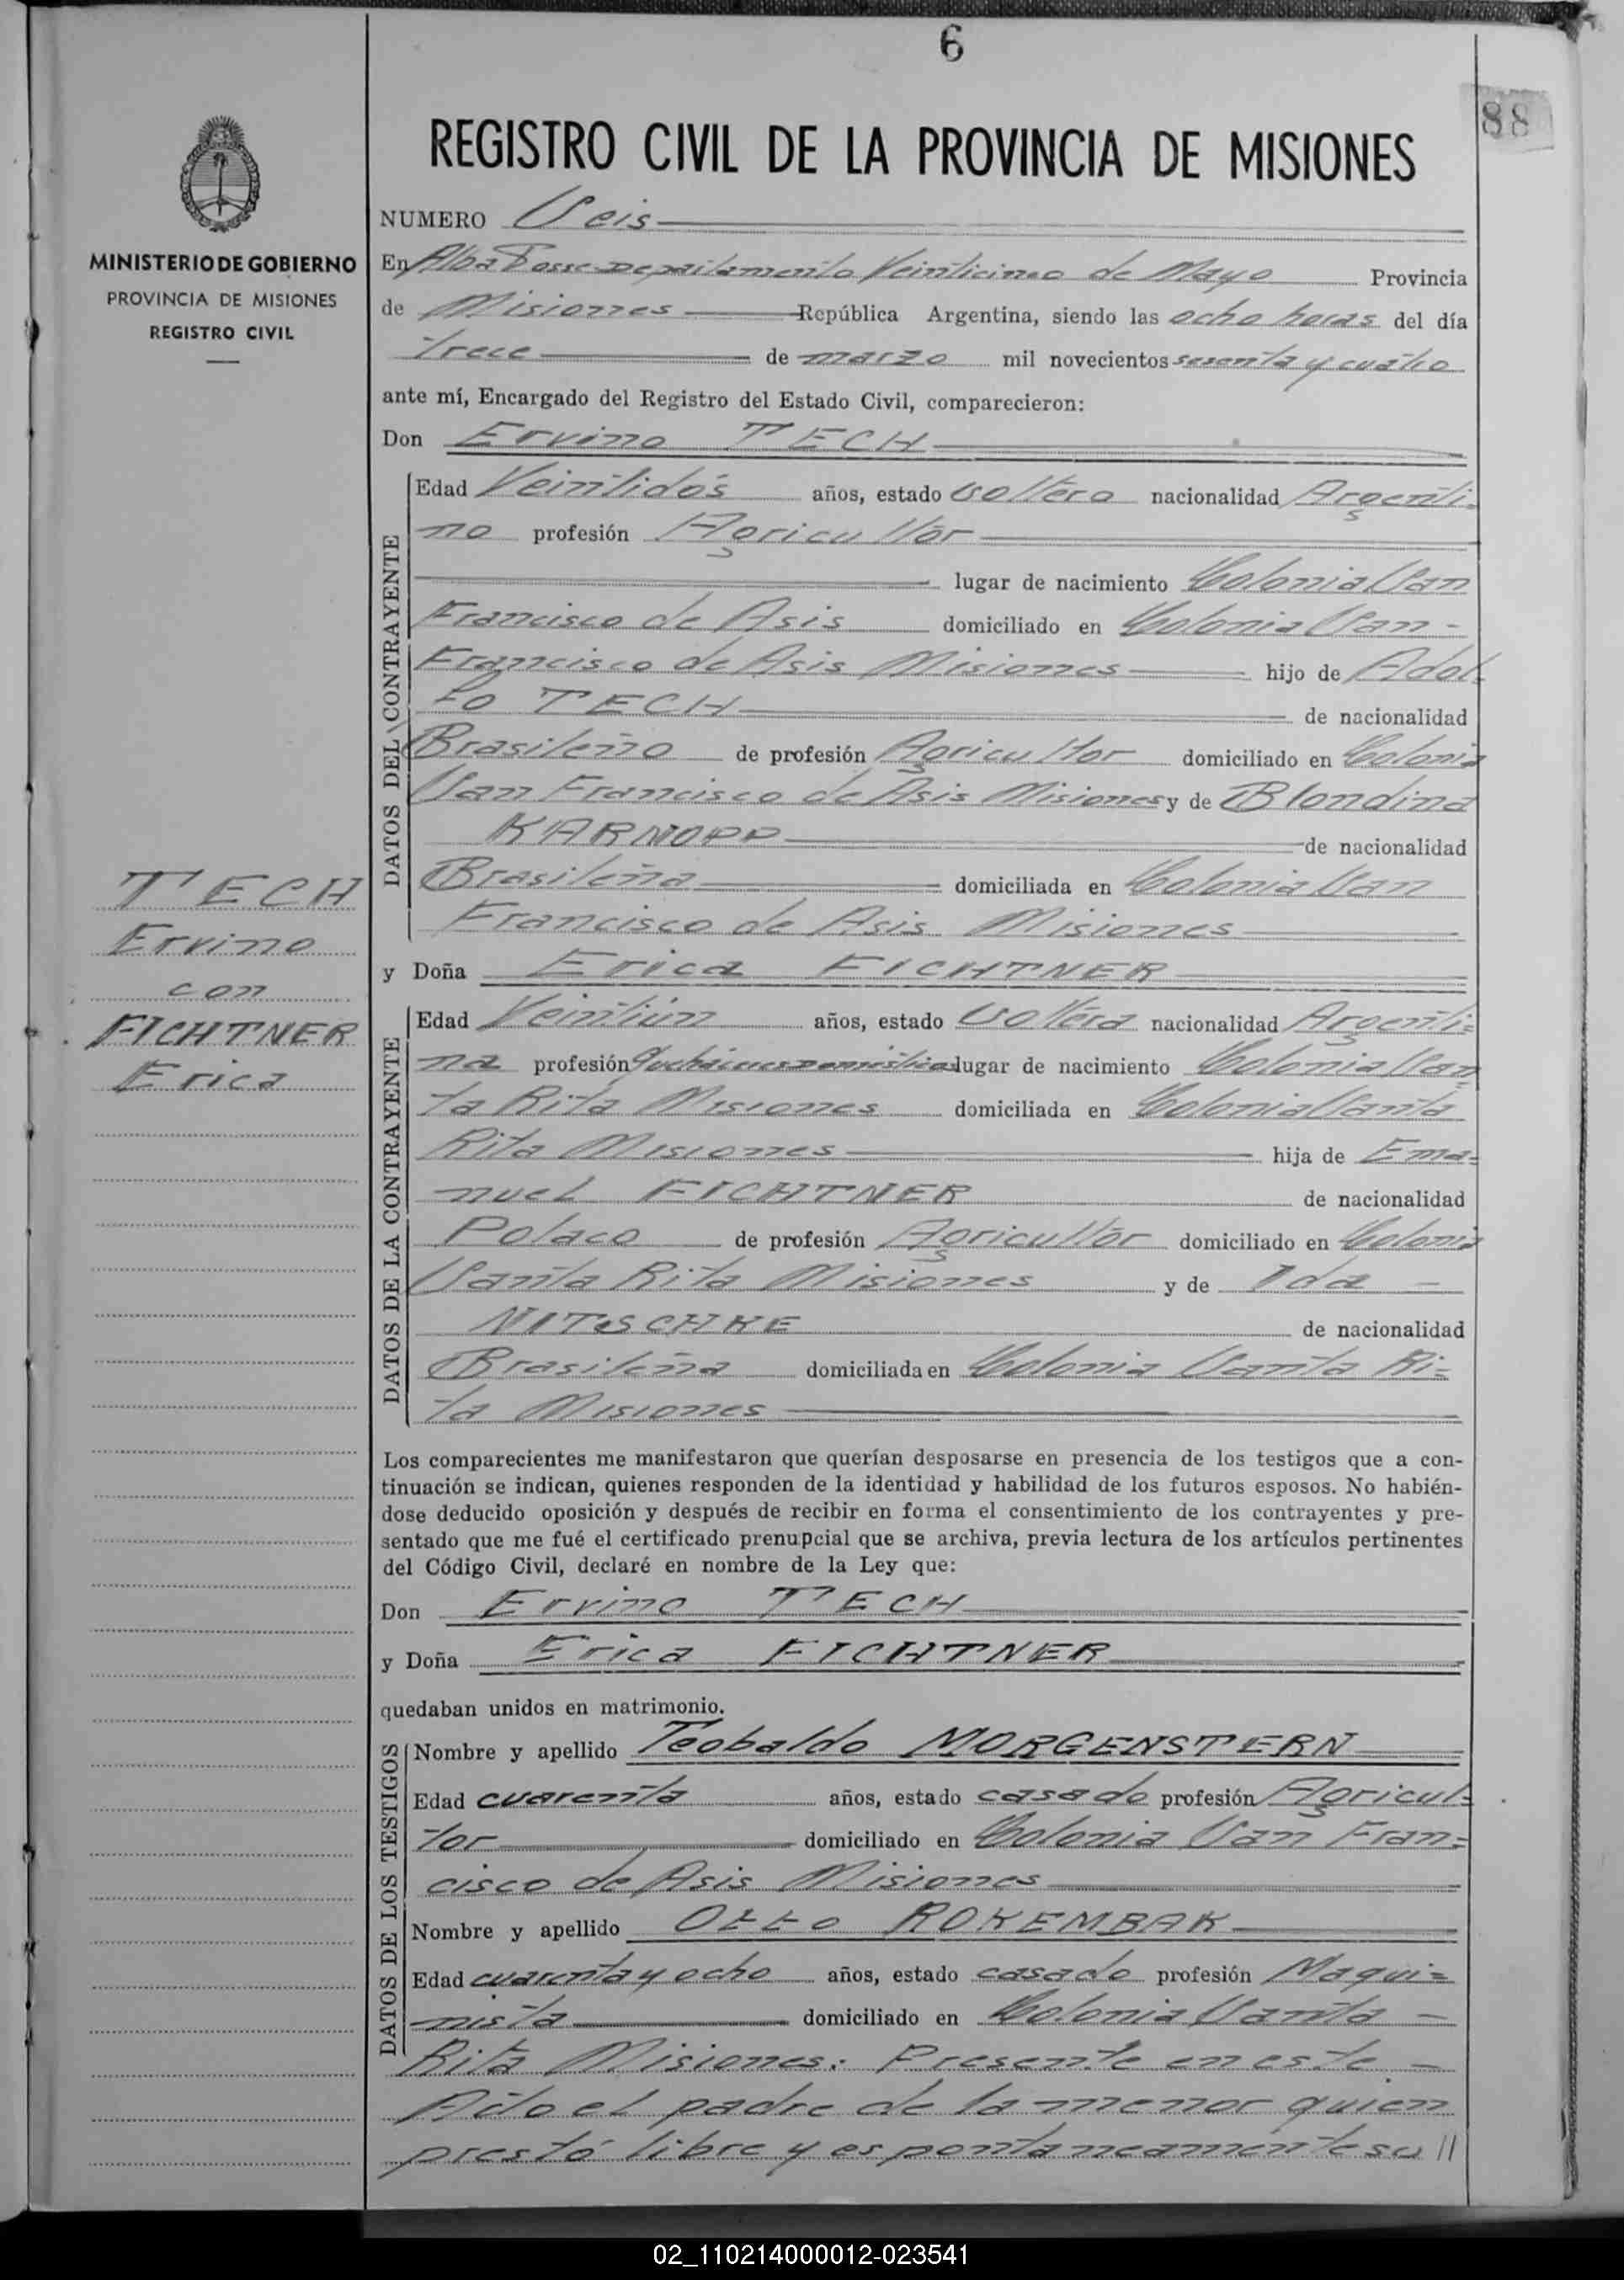 6
88
REGISTRO CIVIL DE LA PROVINCIA DE MISIONES
MINISTERIO DE GOBIERNO
PROVINCIA DE MISIONES
REGISTRO CIVIL
NUMERO Seis
En Alba Posse Departamento Veinticinco de Mayo Provincia
de Misiones República Argentina, siendo las ocho horas del día
trece de marzo mil novecientos sesenta y cuatro
ante mí, Encargado del Registro del Estado Civil, comparecieron:
Don Ervino TECH
DATOS DEL CONTRAYENTE
Edad Veintidós años, estado soltero nacionalidad Argenti-
no profesión Agricultor
lugar de nacimiento Colonia San
Francisco de Asis domiciliado en Colonia San -
Francisco de Asis Misiones hijo de Adol-
fo TECH de nacionalidad
Brasileño de profesión Agricultor domiciliado en Colonia
San Francisco de Asis Misiones y de Blondina
KARNOPP de nacionalidad
Brasileña domiciliada en Colonia San
Francisco de Asis Misiones
TECH
Ervino
con
FICHTNER
Erica
y Doña Erica FICHTNER
DATOS DE LA CONTRAYENTE
Edad Veintiún años, estado Soltera nacionalidad Argenti=
na profesión Quehaceres Domésticos lugar de nacimiento Colonia San
ta Rita Misiones domiciliada en Colonia Santa
Rita Misiones hija de Ema=
nuel FICHTNER de nacionalidad
Polaco de profesión Agricultor domiciliado en Colonia
Santa Rita Misiones y de Ida -
NITSCHKE de nacionalidad
Brasileña domiciliada en Colonia Santa Ri=
ta Misiones
Los comparecientes me manifestaron que querían desposarse en presencia de los testigos que a con-
tinuación se indican, quienes responden de la identidad y habilidad de los futuros esposos. No habién-
dose deducido oposición y después de recibir en forma el consentimiento de los contrayentes y pre-
sentado que me fué el certificado prenupcial que se archiva, previa lectura de los artículos pertinentes
del Código Civil, declaré en nombre de la Ley que:
Don Ervino TECH
y Doña Erica FICHTNER
quedaban unidos en matrimonio.
DATOS DE LOS TESTIGOS
Nombre y apellido Teobaldo MORGENSTERN
Edad cuarenta años, estado casado profesión Agricul=
tor domiciliado en Colonia San Fran=
cisco de Asis Misiones
Nombre y apellido Otto ROKEMBAK
Edad cuarenta y ocho años, estado casado profesión Maqui=
nista domiciliado en Colonia Santa -
Rita Misiones. Presente en este -
Acto el padre de la menor quien
prestó libre y espontaneamente su //
02_110214000012-023541